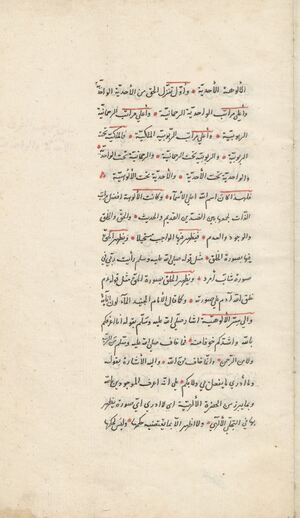 الالوهية للأحدية وأول تنزل الحق من الأحدية الواحدية
وأعلى مراتب الواحدية الرحمانية وأعلى مراتب الرحمانية
الربوبية وأعلى مراتب الربوبية الملكية فالملكية تحت
الربوبية والربوبية تحت الرحمانية والرحمانية تحت الواحدية
والواحدية تحت الأحدية والأحدية تحت الألوهية
اسم الله أعلى الأسماء وكانت الألوهية أفضل
الذات بين الضدين القديم والحديث والحق والخلق
والوجود والعدم فيظهر فيها الواجب مستحيلا ويظهر الحق
فيها بصورة الخلق مثل قوله صلى الله عليه وسلم رأيت ربي في
صورة شاب أمرد ويظهر الخلق بصورة الحق مثل قوله
خلق الله آدم على صورته وكما قال الإمام
وإلى سر الألوهية أشار صلى الله عليه وسلم بقوله أنا أعرفكم
بالله وأشدكم خوفا منه فما خاف صلى الله عليه وسلم من الرب
ولا من الرحمن وإنما خاف من الله وإليه الإشارة بقوله
وما أدري ما يفعل بي ولا بكم على أنه أعرف الموجودين بالله
وبما يبرز من الحضرة الإلهية أي لا أدري أي صورة يظهر
بها في التجلي الإلهي ولا أظهر إلا بما حكمها